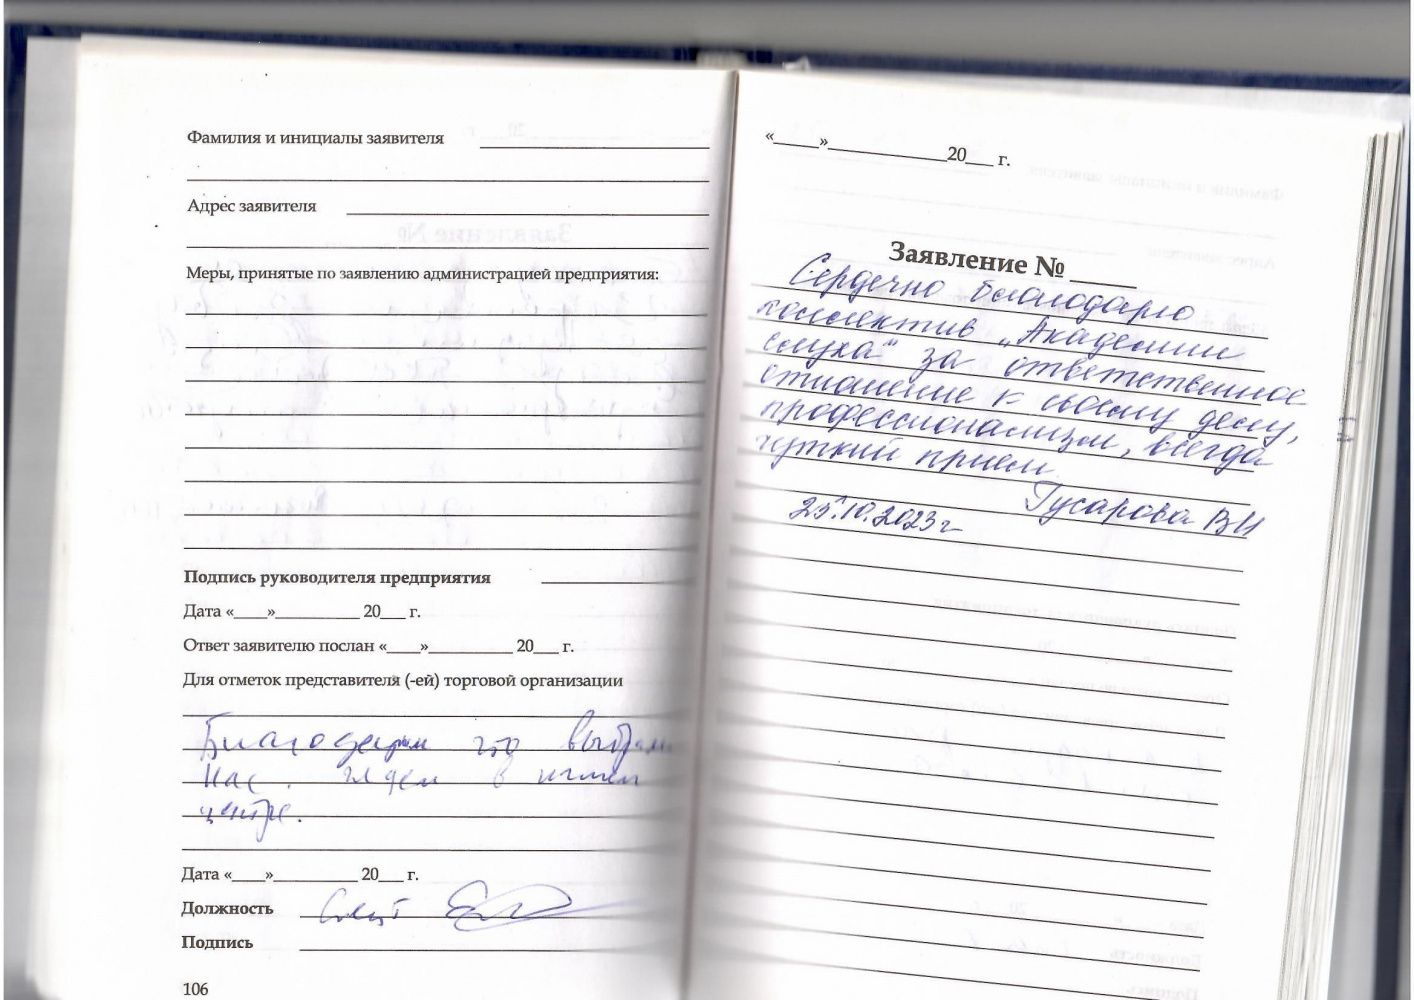 Фамилия и инициалы заявителя
Адрес заявителя
Меры, принятые по заявлению администрацией предприятия:
Подпись руководителя предприятия
Дата «____»__________ 20___ г.
Ответ заявителю послан «____»__________ 20___ г.
Для отметок представителя (-ей) торговой организации
Благодарим что выбрали
нас. Ждем в нашем
центре.
Дата «____»__________ 20___ г.
Должность
Подпись
106
«_____»____________20___ г.
Заявление № ______
Сердечно благодарю
коллектив „Академии
слуха“ за ответственное
отношение к своему делу,
профессионализм, всегда
чуткий прием
Гусарова ВИ
25.10.2023г